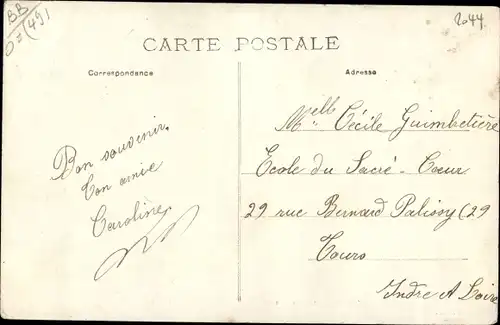 BB
(49)
2044
CARTE POSTALE
Correspondance
Adresse
Bon souvenir.
Ton amie
Caroline
Melle Cécile Guimbetière
Ecole du Sacré-Coeur
29 rue Bernard Palissy (29
Tours
Indre et Loire